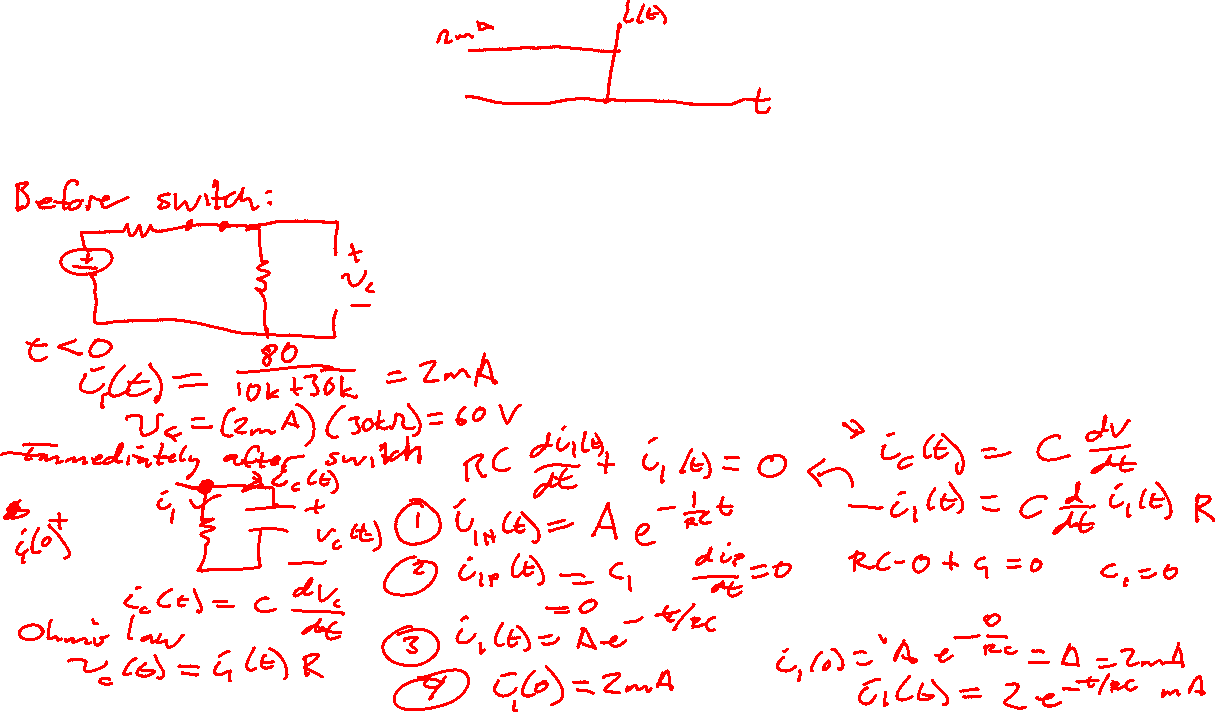 i(t)
2mA
t
Before switch:
+
v_c
−
t<0
i_1(t) = 80/(10k+30k) = 2mA
v_c = (2mA)(30kΩ) = 60 V
Immediately after switch
i_1 i_c(t)
+
v_c(t)
−
i_1(0^+)
i_c(t) = C dv_c/dt
Ohm's law
v_c(t) = i_1(t) R
RC di_1(t)/dt + i_1(t) = 0
i_c(t) = C dv/dt
-i_1(t) = C d/dt i_1(t) R
① i_1H(t) = A e^{-1/RC t}
② i_1P(t) = c_1 di_P/dt = 0 RC·0 + c_1 = 0 c_1 = 0
= 0
③ i_1(t) = A e^{-t/RC}
④ i_1(0) = 2mA
i_1(0) = A e^{-0/RC} = A = 2mA
i_1(t) = 2 e^{-t/RC} mA